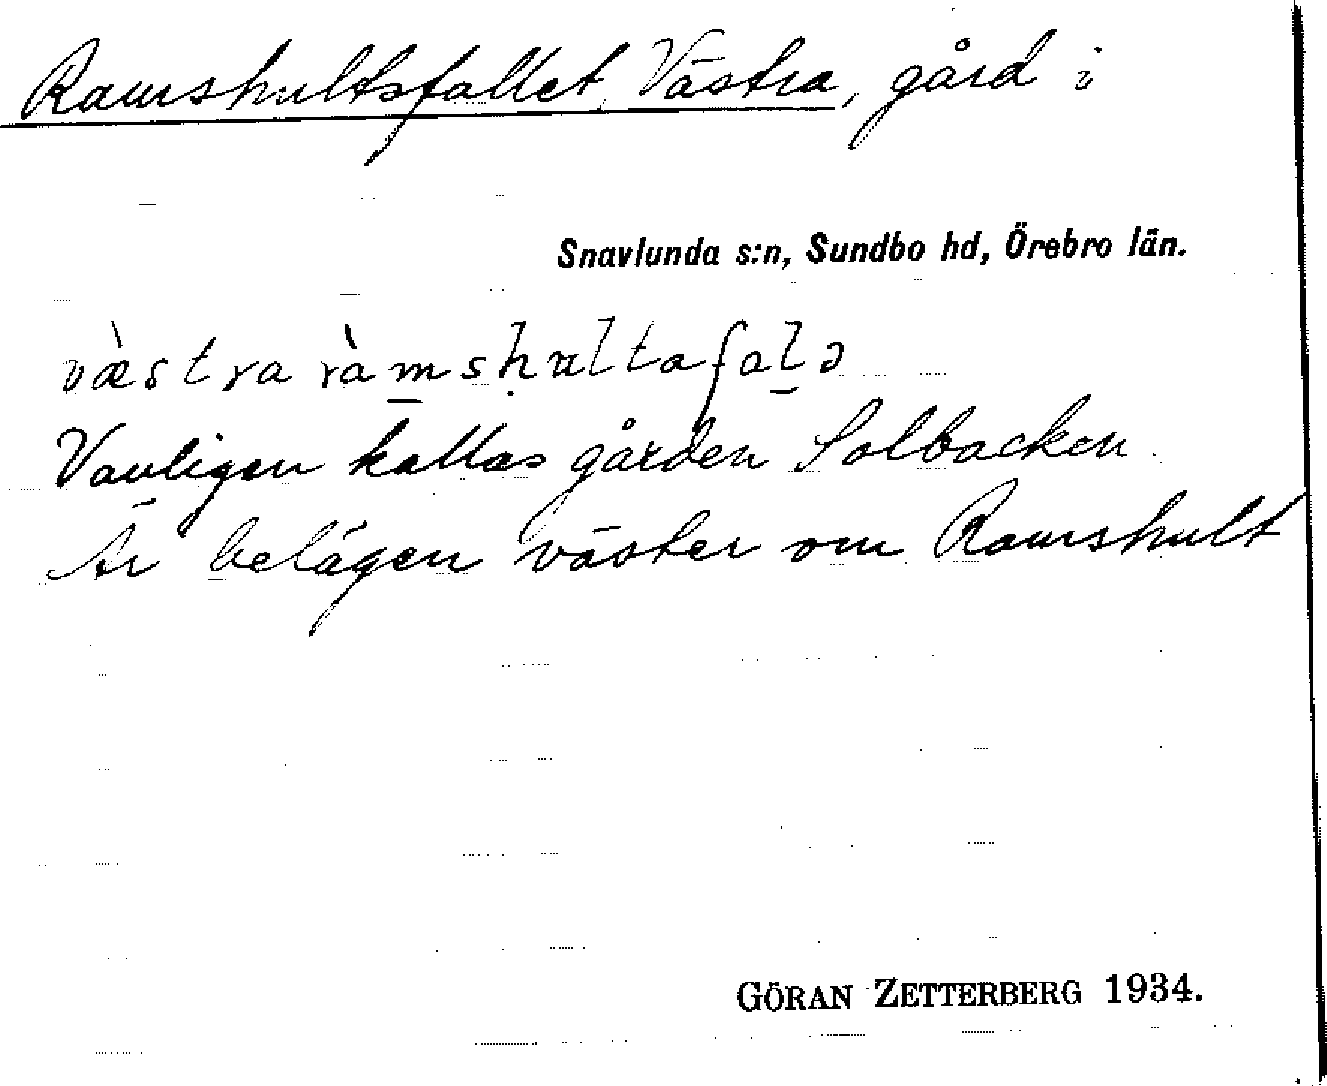 Ramshultsfallet, Västra, gård i
Snavlunda s:n, Sundbo hd, Örebro län.
væ̀stra ràm̱sḥultafaḻə
Vanligen kallas gården Solbacken.
Är belägen väster om Ramshult
GÖRAN ZETTERBERG 1934.